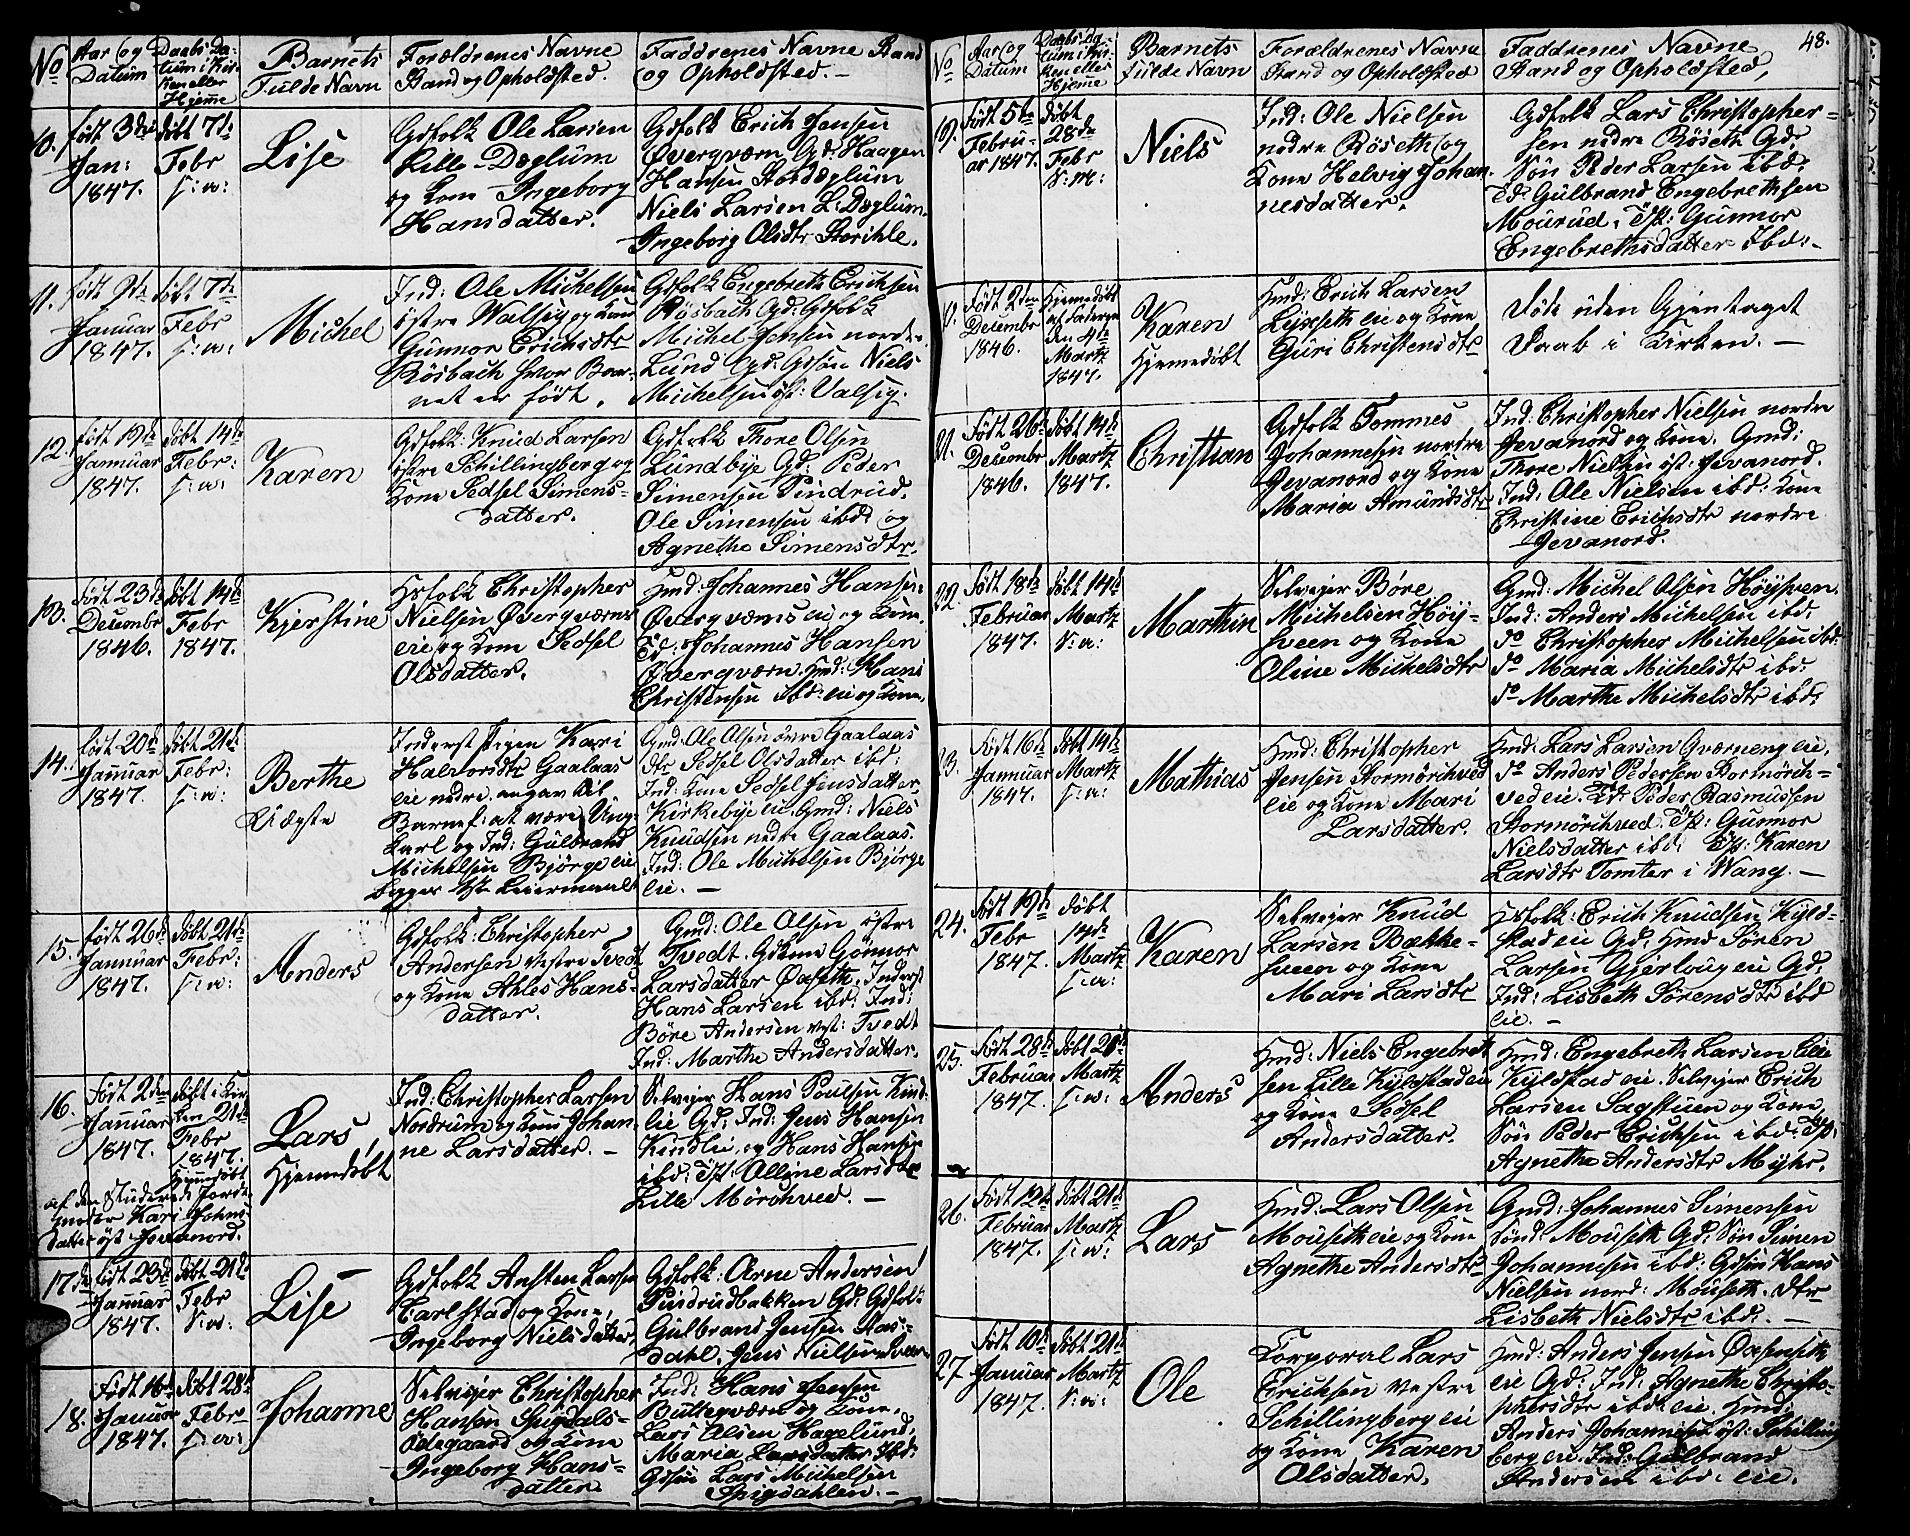 No
Aar og
Datum
Daabs Da-
tum i Kir-
ken eller
Hjeme
Barnets
Fulde Navn
Forældrenes Navne
Stand og Opholdsted.
Faddrenes Navne Stand
og Opholdsted. -
10.
født 3die
Jan:
1847.
døbt 7de
Febr
Lise
Gdfolk Ole Larsen
Lille-Dæglum
og Kone Ingeborg
Hansdatter.
Gdfolk Erich Jensen
Øvergværn Gd: Haagen
Hansen Stordæglum
Niels Larsen L. Dæglum.
Ingeborg Olsdtr Storihle.
11.
født 9de
Januar
1847.
døbt 7de
Febr
Michel
Ind: Ole Michelsen
østre Walsig og Kone
Gunnor Erichsdtr
Røsbach hvor Bar-
net er født.
Gdfolk Engebreth Erichsen
Røsbach Gd: Gdfolk
Michel Jensen nordre
Lund Gd: Gdsøn Niels
Michelsen øst: Valsig.
12.
født 19de
Januar
1847.
døbt 14de
Febr:
Karen
Gdfolk: Knud Larsen
østre Schillingberg og
Kone Sedsel Simens-
datter.
Gdfolk Thore Olsen
Lundbye Gd: Peder
Simensen Pindrud.
Ole Simensen ibd: og
Agnethe Simensdtr.
13.
født 23de
Decembr
1846.
døbt 14de
Febr
1847.
Kjerstine
Hsfolk Christopher
Nielsen Øvergværns
eie og Kone Sedsel
Olsdatter.
Hmd: Johannes Hansen
Øvergværns eie og Kone.
Ed: Johannes Hansen
Øvergværn. Hmd: Hans
Christensen ibd: eie og Kone.
14.
født 20de
Januar
1847.
døbt 21de
Febr:
Berthe
Uægte
Inderst Pigen Kari
Halvorsdtr Gaalaas
eie nedre. angav til
Barnef: at være Ung-
karl og Ind: Gulbrand
Michelsen Bjørge eie
begges 1ste Leiermaal
Gmd: Ole Olsen øvre Gaalaas
dtr Sedsel Olsdatter ibd:
Ind: Kone Sedsel Jensdatter
Kirkebye eie. Gmd: Niels
Knudsen nedre Gaalaas.
Ind: Ole Michelsen Bjørge
eie. -
15.
født 26de
Januar
1847.
døbt 21de
Febr:
Anders
Gdfolk: Christopher
Andersen vestre Tvedt
og Kone Ahles Hans-
datter.
Gmd: Ole Olsen østre
Tvedt. Gdkone Gonnor
Larsdatter Øvseth. Inderst
Hans Larsen ibd: Ind:
Børe Andersen vest: Tvedt
Ind: Marthe Andersdatter.
16.
født 2den
Januar
1847.
døbt i Kir-
ken 21de
Febr
1847.
Hjemdøbt
af den Studerede Jorde-
moder Kari Johns-
datter øst Jevanord.
Lars
Hjemdøbt
Ind: Christopher Larsen
Nordrum og Kone Johan-
ne Larsdatter. -
Selveier Hans Poulsen Kind-
lie Gd: Ind: Jens Hansen
Kindlie, og Hans Hansen
ibd: Tjp: Alline Larsdtr
Lille Mørchved. -
17de
født 23de
Januar
1847.
døbt 21de
Febr
Lise
Gdfolk Ansten Larsen
Carlstad og Kone,
Ingeborg Nielsdatter.
Gdfolk: Arne Andersen
Pindrudbakken Gd: Gdfolk
Gulbrand Jensen Aas-
dahl. Jens Nielsen
18.
født 16de
Januar
1847.
døbt 28de
Febr
Johanne
Selveier Christopher
Hansen Spigdals-
ødegaard og Kone
Ingeborg Hans-
datter
Ind: Hans Jensen
Butteqværn og Kone.
Lars Olsen Hagelund.
Maria Larsdatter ibd:
Gdsøn Lars Michelsen
Spigdahlen. -
48.
No
Aar og
Datum
Daabs Da-
tum i Kir-
ken eller
Hjeme
Barnets
Fulde Navn
Forældrenes Navne
Stand og Opholdsted
Faddrenes Navne
Stand og Opholdsted,
19.
Født 5te
Febru-
ar 1847.
døbt
28de
Febr
Niels
Ind: Ole Nielsen
nedre Røseth og
Kone Helvig Johan-
nesdatter.
Gdfolk Lars Christopher-
sen nedre Røseth Gd:
Søn Peder Larsen ibd:
Ed: Gulbrand Engebrethsen
Mourud. Tjp: Gunnor
Engebrethsdatter Ibd: -
Født 2den
Decembr
1846.
Hjemmedøbt
den 4de
Martz
1847.
Karen
Hjemedøbt
Hmd: Erich Larsen
Lyseth eie og Kone
Guri Christensdtr
Døde uden Gjentaget
Daab i Kirken. -
21.
Født 26de
Decembr
1846.
Døbt 14de
Martz
1847.
Christian
Gdfolk Tommes
Johannesen nordre
Jevanord og Kone
Maria Amundsdtr
Ind: Christopher Nielsen nordre
Jevanord og Kone. Gmd:
Thore Nielsen øst: Jevanord.
Ind: Ole Nielsen ibd: Kone
Christine Erichsdtr nordre
Jevanord.
22.
Født 18de
Februar
1847.
Døbt 14de
Martz
Marthin
Selveier Børe
Michelsen Høij-
sveen og Kone
Oline Michelsdtr
Gmd: Michel Olsen Høijsveen
Ind: Anders Michelsen ibd:
do Christopher Michelsen ibd:
do Maria Michelsdtr ibd:
do Marthe Michelsdtr ibd:
23.
Født 16de
Januar
1847.
Døbt 14de
Martz
Mathias
Hmd: Christopher
Jensen Stormørchved
eie og Kone Mari
Larsdatter.
Hmd: Lars Larsen Qværneng eie.
do Anders Pedersen Stormørch-
ved eie. Ed: Peder Rasmussen
Stormørchved. Tjp: Gunnor
Nielsdatter ibd: Tjp: Karen
Larsdtr Tomter i Wang. -
24.
Født 19de
Febr
1847.
døbt
14de
Martz
Karen
Selveier Knud
Larsen Bække-
sveen og Kone
Mari Larsdtr
Hsfolk: Erich Knudsen Kyld-
stad eie Gd: Hmd Søren
Larsen Gjerlaug eie Gd:
Ind: Lisbeth Sørensdtr ibd
eie. -
25.
født 28de
Februar
1847.
Døbt 21de
Martz
Anders
Hmd: Niels Engebret-
sen Lille Kyldstad eie
og Kone Sedsel
Andersdatter.
Hmd: Engebreth Larsen Lille
Kyldstad eie. Selveier Erich
Larsen Sagstuen og Kone
Søn Peder Erichsen ibd: Tjp:
Agnethe Andersdtr Myhr.
26.
Født 12te
Februar
1847.
Døbt 21de
Martz
Lars
Hmd: Lars Olsen
Mouseth eie og Kone
Agnethe Andersdtr
Gmd: Johannes Simensen
sønd: Mouseth Gd: Søn Simen
Johannesen ibd: Gdsøn Hans
Nielsen nord: Mouseth. Dtr
Lisbeth Nielsdtr ibd: -
27
Født 10de
Januar
1847.
Døbt 21de
Martz
Ole
Corporal Lars
Erichsen vestre
Schillingberg eie
og Kone Karen
Olsdatter.
Hmd: Anders Jensen
eie Gd: Ind: Agnethe Christo-
phersdtr ibd: eie. Hmd:
Anders Johannesen øst: Schilling-
berg eie. Ind: Gulbrand
Andersen ibd: eie.